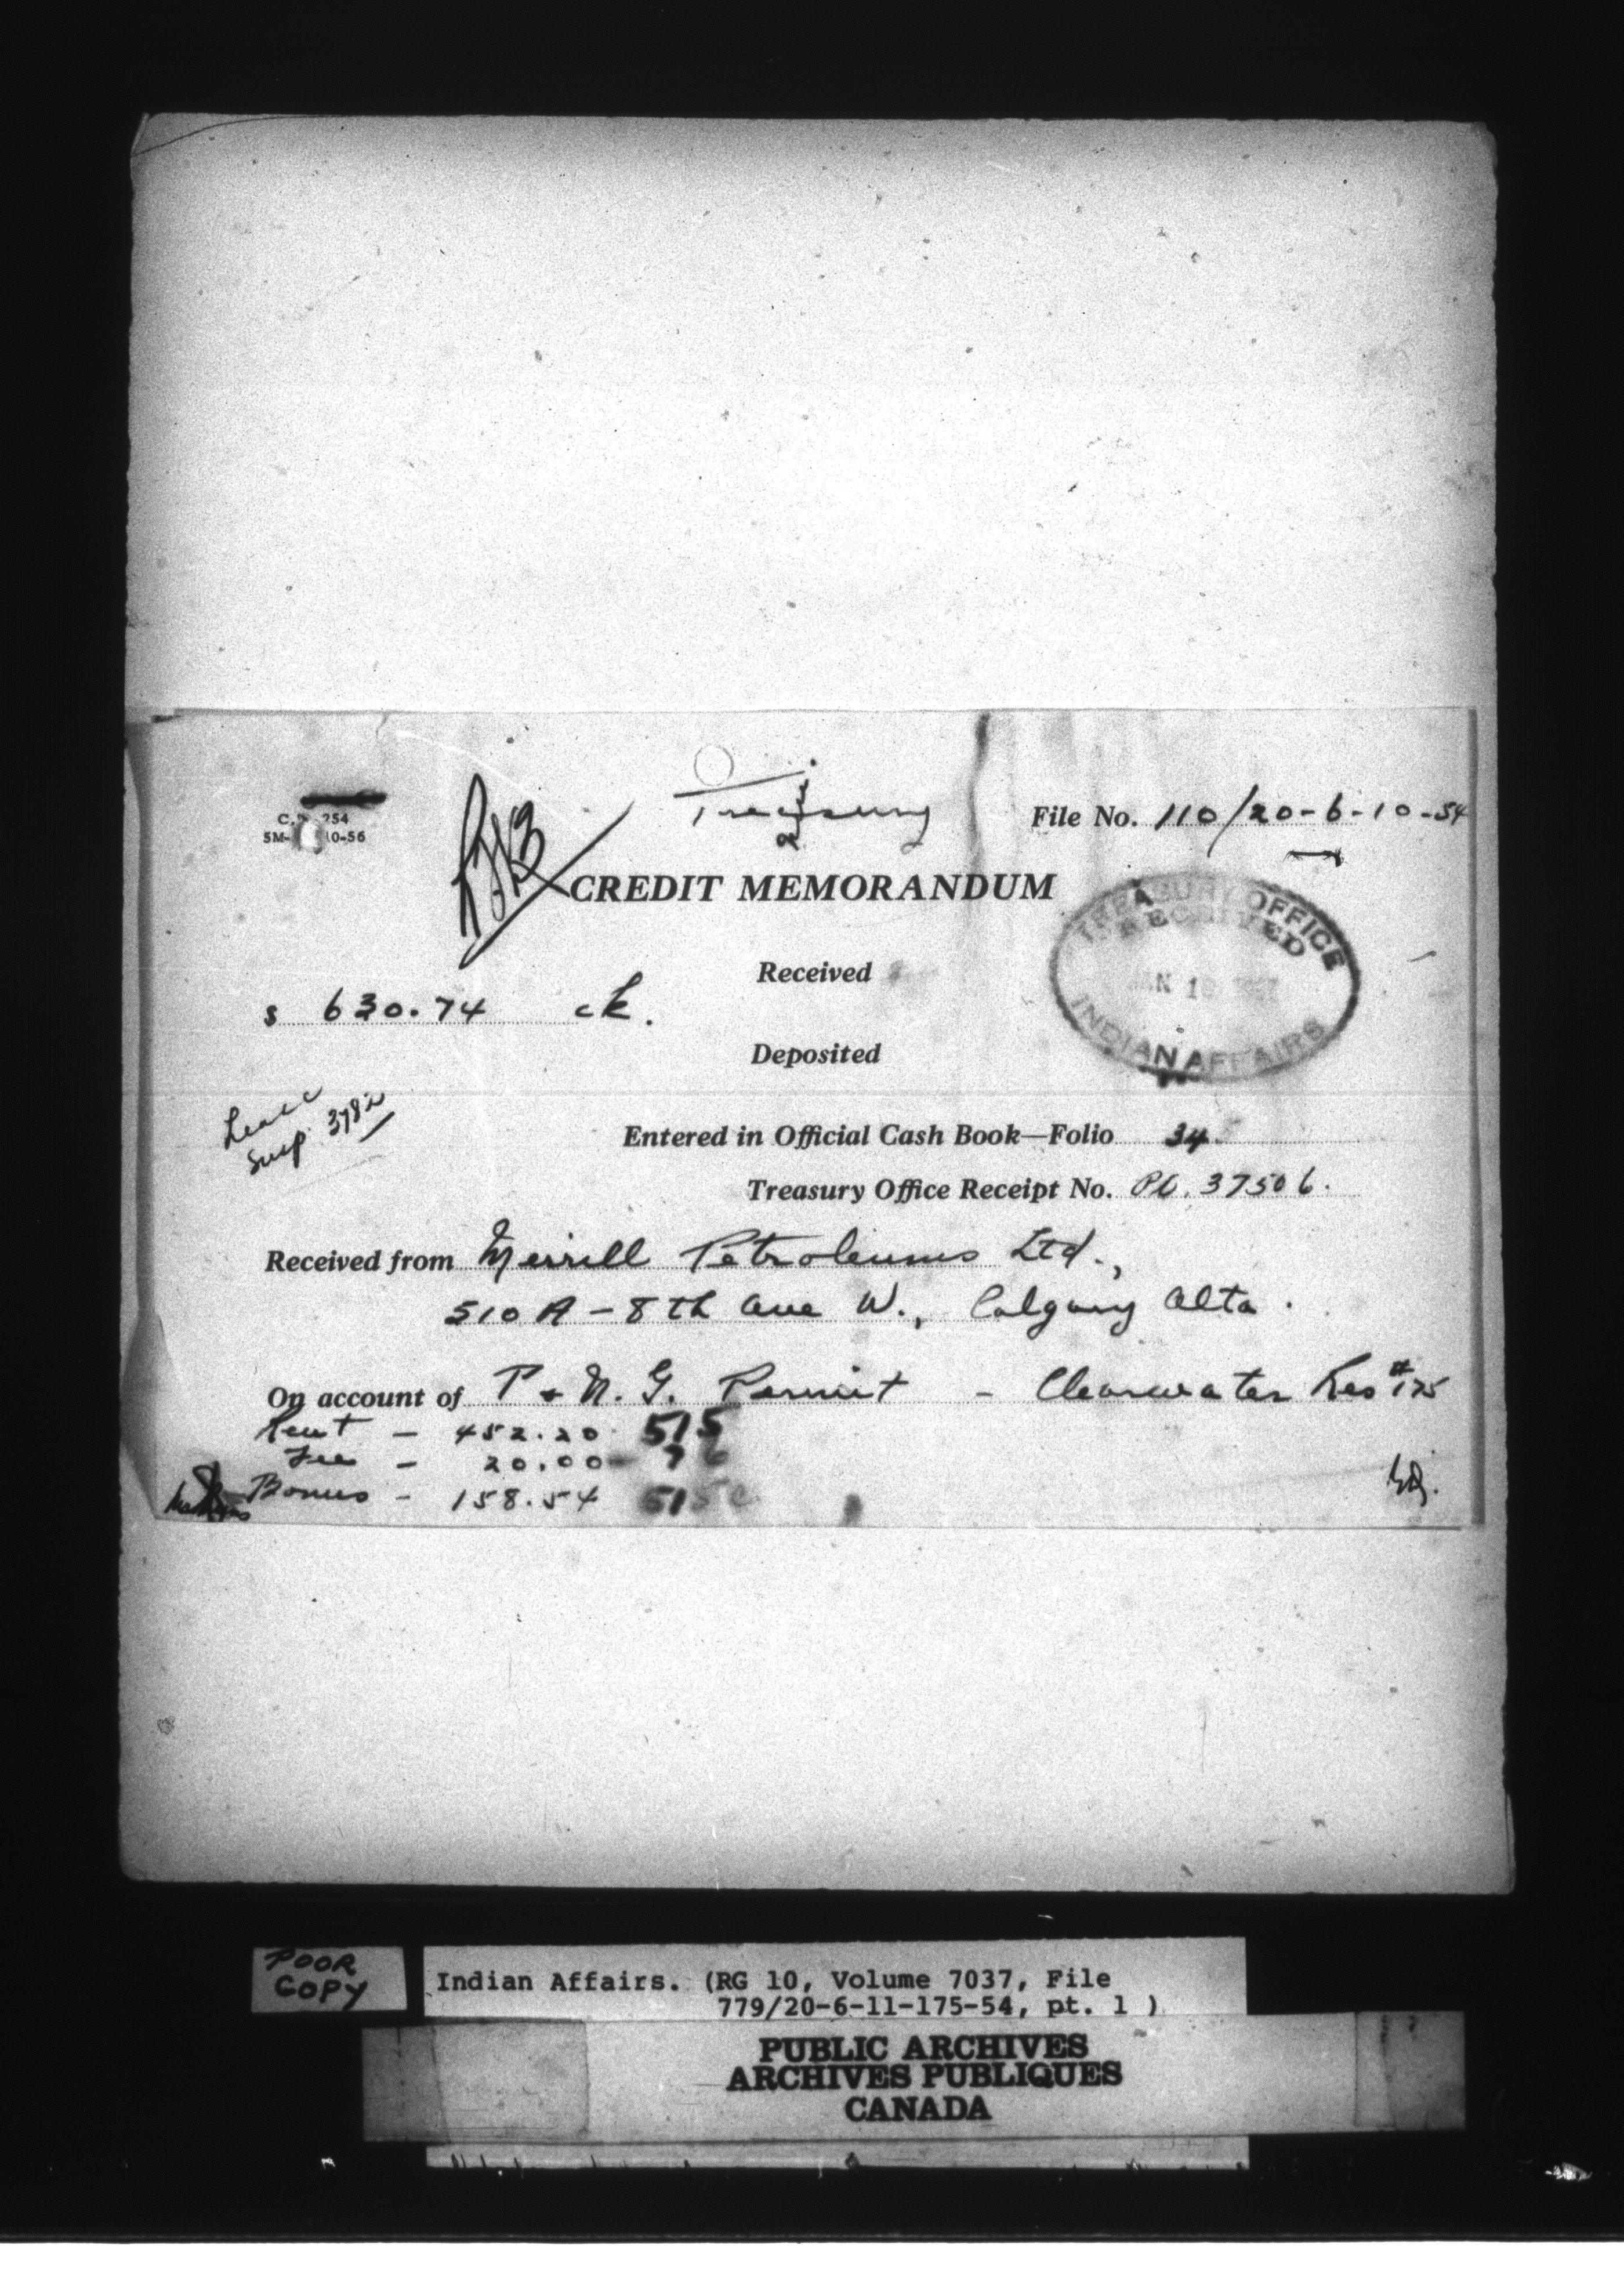 Treasury
File No. 110/20-6-10-54
254
5M- 10-56
CREDIT MEMORANDUM
TREASURY OFFICE
RECEIVED
JAN 1
INDIAN AFFAIRS
Received
$ 630.74 ck.
Deposited
Lease
Susp. 3782
Entered in Official Cash Book—Folio 34
Treasury Office Receipt No. 37506.
Received from Merrill Petroleums Ltd.,
510 A - 8th Ave W., Calgary Alta.
On account of P & N. G. Permit - Clearwater Res #175
Rent - 452.20 515
Fee - 20.00 - 76
Bonus - 158.54 515
POOR
COPY
Indian Affairs. (RG 10, Volume 7037, File
779/20-6-11-175-54, pt. 1 )
PUBLIC ARCHIVES
ARCHIVES PUBLIQUES
CANADA